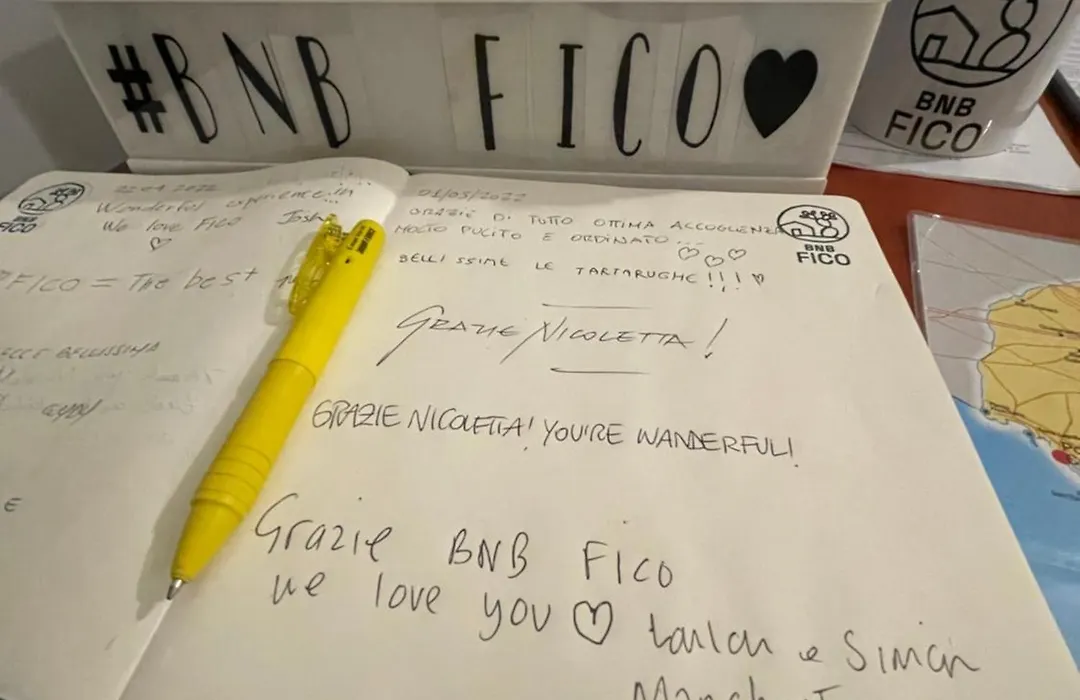 #BNB FICO♥
BNB
FICO
FICO
Wonderful experience in
We love FICO
Josh
FICO = The best
BELLISSIMA
E
01/05/2022
GRAZIE DI TUTTO OTTIMA ACCOGLIENZA
MOLTO PULITO E ORDINATO...
BELLISSIME LE TARTARUGHE!!!
BNB
FICO
GRAZIE NICOLETTA!
GRAZIE NICOLETTA! YOU'RE WANDERFUL!
Grazie BNB FICO
we love you ♡ e Simon